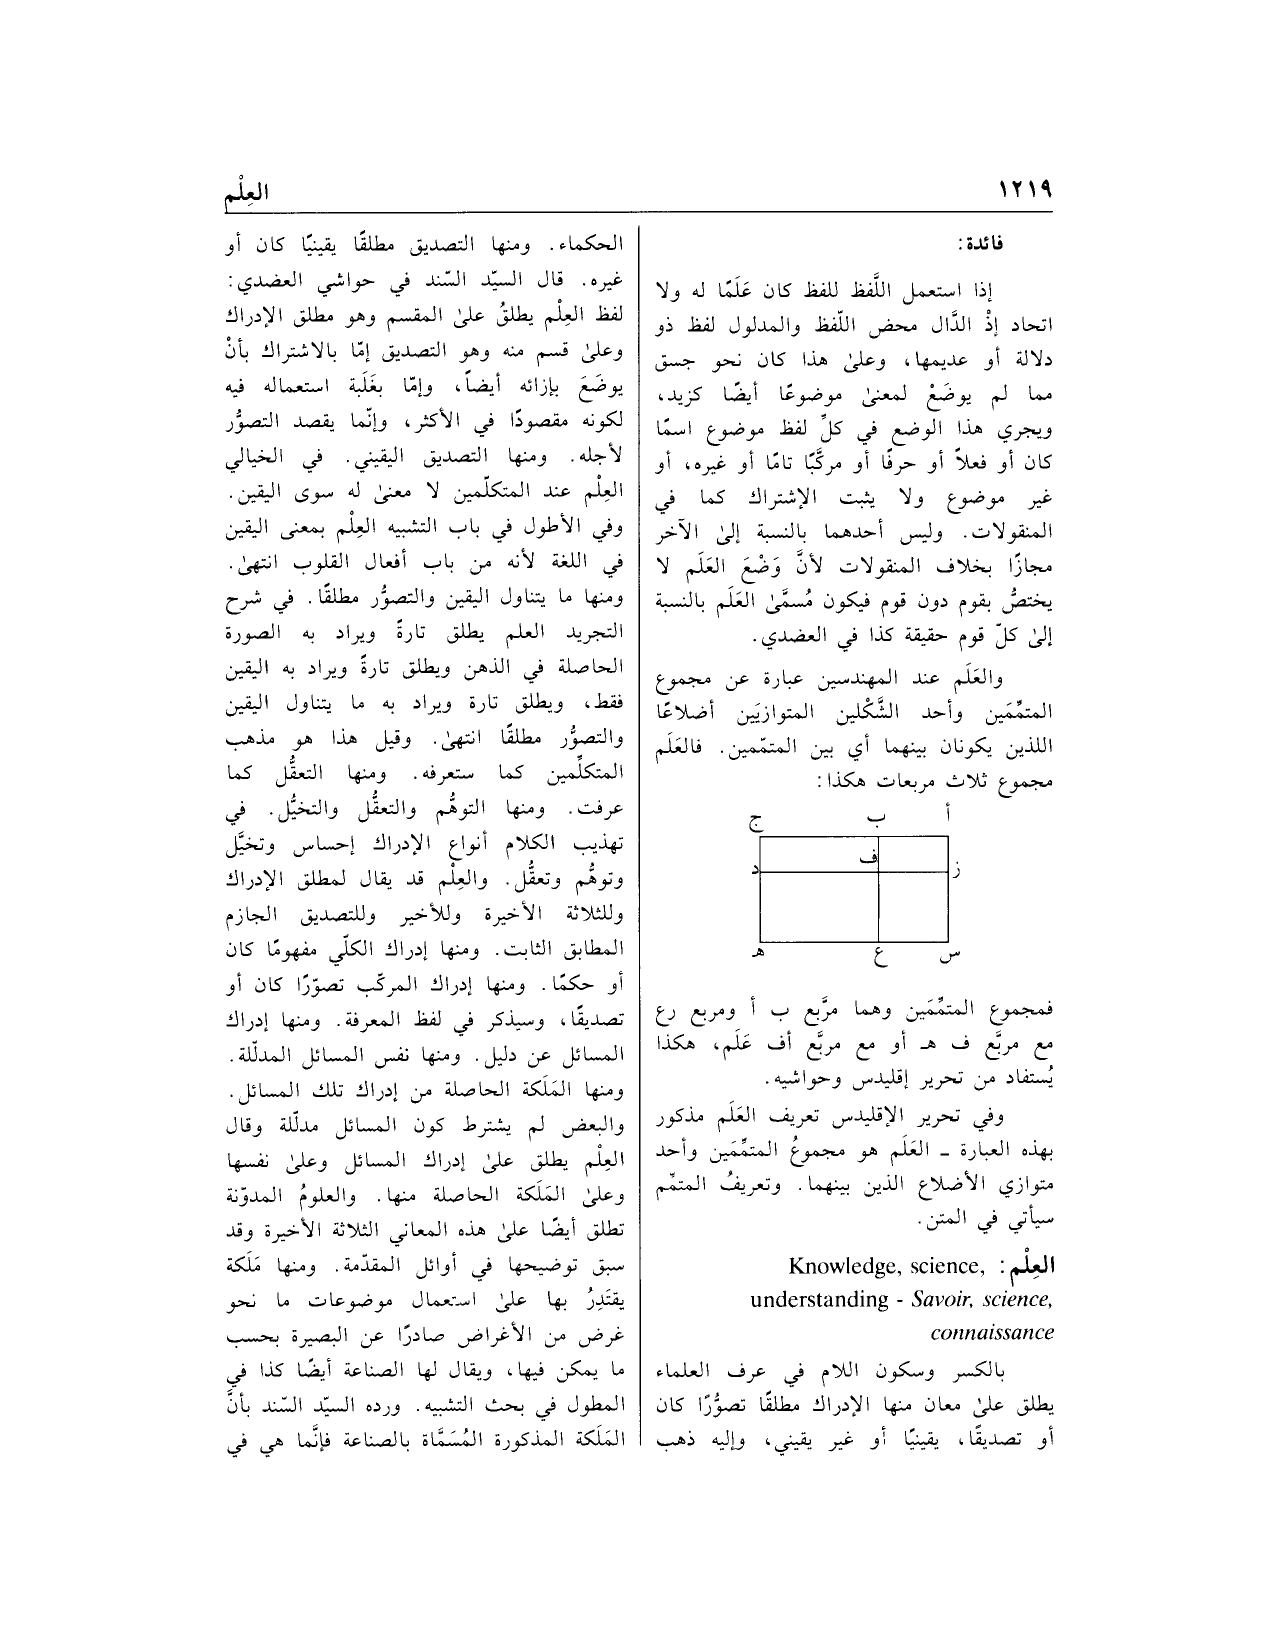 ١٢١٩
العِلْم
فائدة:
إذا استعمل اللَّفظ للفظ كان عَلَمًا له ولا
اتحاد إذْ الدَّال محض اللّفظ والمدلول لفظ ذو
دلالة أو عديمها، وعلىٰ هذا كان نحو جسق
مما لم يوضَعْ لمعنىٰ موضوعًا أيضًا كزيد،
ويجري هذا الوضع في كلِّ لفظ موضوع اسمًا
كان أو فعلاً أو حرفًا أو مركَّبًا تامًا أو غيره، أو
غير موضوع ولا يثبت الإشتراك كما في
المنقولات. وليس أحدهما بالنسبة إلىٰ الآخر
مجازًا بخلاف المنقولات لأنَّ وَضْعَ العَلَم لا
يختصُّ بقوم دون قوم فيكون مُسمَّىٰ العَلَم بالنسبة
إلىٰ كلّ قوم حقيقة كذا في العضدي.
والعَلَم عند المهندسين عبارة عن مجموع
المتمِّمَين وأحد الشَّكْلين المتوازيَين أضلاعًا
اللذين يكونان بينهما أي بين المتمّمين. فالعَلَم
مجموع ثلاث مربعات هكذا:
أ ب ج
ف
ز د
س ع هـ
فمجموع المتمِّمَين وهما مرَّبع ب أ ومربع رع
مع مربَّع ف هـ أو مع مربَّع أف عَلَم، هكذا
يُستفاد من تحرير إقليدس وحواشيه.
وفي تحرير الإقليدس تعريف العَلَم مذكور
بهذه العبارة ـ العَلَم هو مجموعُ المتمِّمَين وأحد
متوازي الأضلاع الذين بينهما. وتعريفُ المتمِّم
سيأتي في المتن.
العِلْم: Knowledge, science,
understanding - Savoir, science,
connaissance
بالكسر وسكون اللام في عرف العلماء
يطلق علىٰ معان منها الإدراك مطلقًا تصوُّرًا كان
أو تصديقًا، يقينيًا أو غير يقيني، وإليه ذهب
الحكماء. ومنها التصديق مطلقًا يقينيًا كان أو
غيره. قال السيّد السّند في حواشي العضدي:
لفظ العِلْم يطلقُ علىٰ المقسم وهو مطلق الإدراك
وعلىٰ قسم منه وهو التصديق إمّا بالاشتراك بأنْ
يوضَعَ بإزائه أيضاً، وإمّا بغَلَبة استعماله فيه
لكونه مقصودًا في الأكثر، وإنّما يقصد التصوُّر
لأجله. ومنها التصديق اليقيني. في الخيالي
العِلْم عند المتكلّمين لا معنىٰ له سوى اليقين.
وفي الأطول في باب التشبيه العِلْم بمعنى اليقين
في اللغة لأنه من باب أفعال القلوب انتهىٰ.
ومنها ما يتناول اليقين والتصوُّر مطلقًا. في شرح
التجريد العلم يطلق تارةً ويراد به الصورة
الحاصلة في الذهن ويطلق تارةً ويراد به اليقين
فقط، ويطلق تارة ويراد به ما يتناول اليقين
والتصوُّر مطلقًا انتهىٰ. وقيل هذا هو مذهب
المتكلِّمين كما ستعرفه. ومنها التعقُّل كما
عرفت. ومنها التوهُّم والتعقُّل والتخيُّل. في
تهذيب الكلام أنواع الإدراك إحساس وتخيَّل
وتوهُّم وتعقُّل. والعِلْم قد يقال لمطلق الإدراك
وللثلاثة الأخيرة وللأخير وللتصديق الجازم
المطابق الثابت. ومنها إدراك الكلّي مفهومًا كان
أو حكمًا. ومنها إدراك المركّب تصوّرًا كان أو
تصديقًا، وسيذكر في لفظ المعرفة. ومنها إدراك
المسائل عن دليل. ومنها نفس المسائل المدلّلة.
ومنها المَلَكة الحاصلة من إدراك تلك المسائل.
والبعض لم يشترط كون المسائل مدلّلة وقال
العِلْم يطلق علىٰ إدراك المسائل وعلىٰ نفسها
وعلىٰ المَلَكة الحاصلة منها. والعلومُ المدوّنة
تطلق أيضًا علىٰ هذه المعاني الثلاثة الأخيرة وقد
سبق توضيحها في أوائل المقدّمة. ومنها مَلَكة
يقتَدِرُ بها علىٰ استعمال موضوعات ما نحو
غرض من الأغراض صادرًا عن البصيرة بحسب
ما يمكن فيها، ويقال لها الصناعة أيضًا كذا في
المطول في بحث التشبيه. ورده السيّد السّند بأنَّ
المَلَكة المذكورة المُسَمَّاة بالصناعة فإنَّما هي في